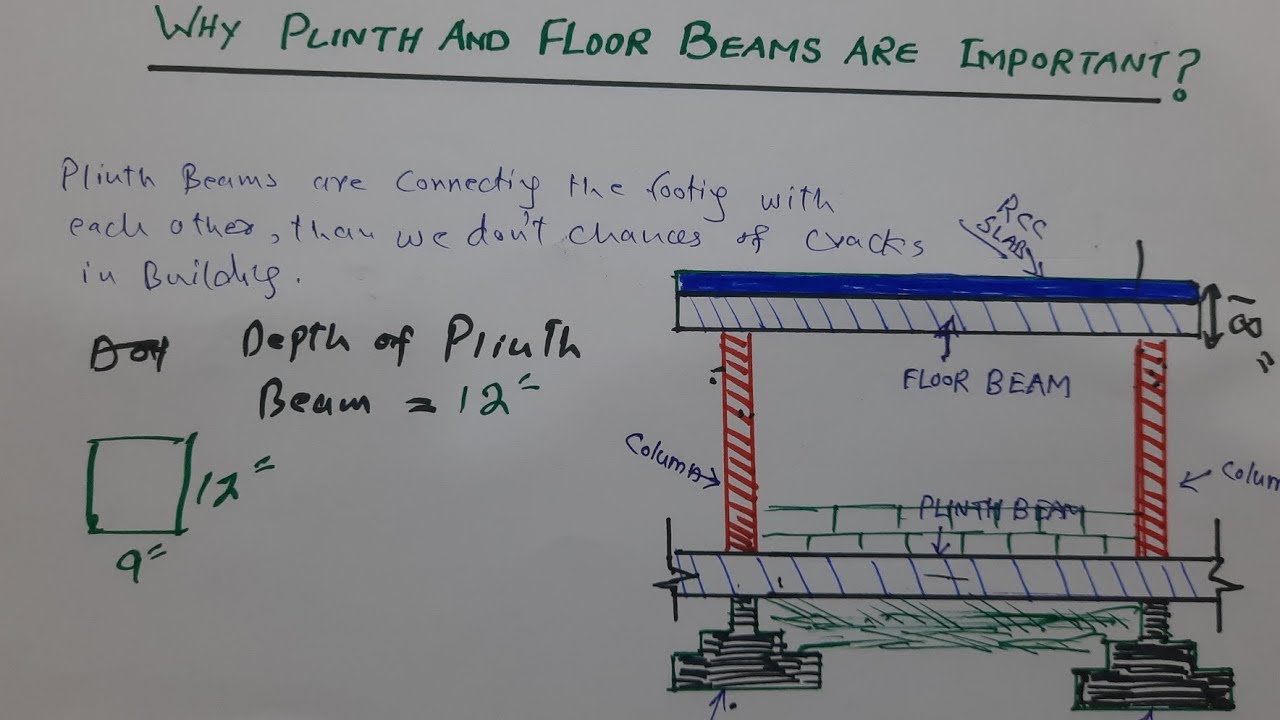 WHY PLINTH AND FLOOR BEAMS ARE IMPORTANT?
Plinth Beams are connecting the footig with
each other, than we don't chances of cracks
in Buildig.
Depth of Plinth
Beam = 12"
12"
9"
RCC
SLAB
18"
FLOOR BEAM
Column
Colum
PLINTH BEAM